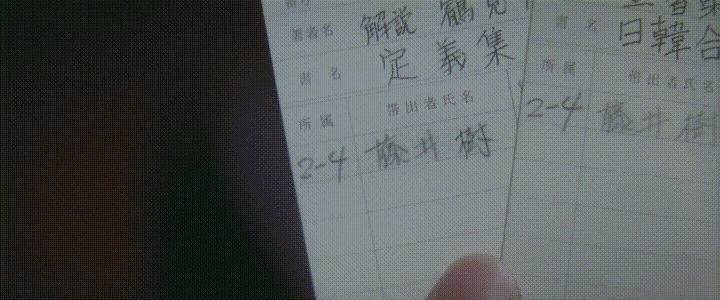 著者名 解説 鶴見
書名 定義集
所属 帯出者氏名
2-4 藤井樹
書名 日韓合
所属 帯出者氏名
2-4 藤井樹